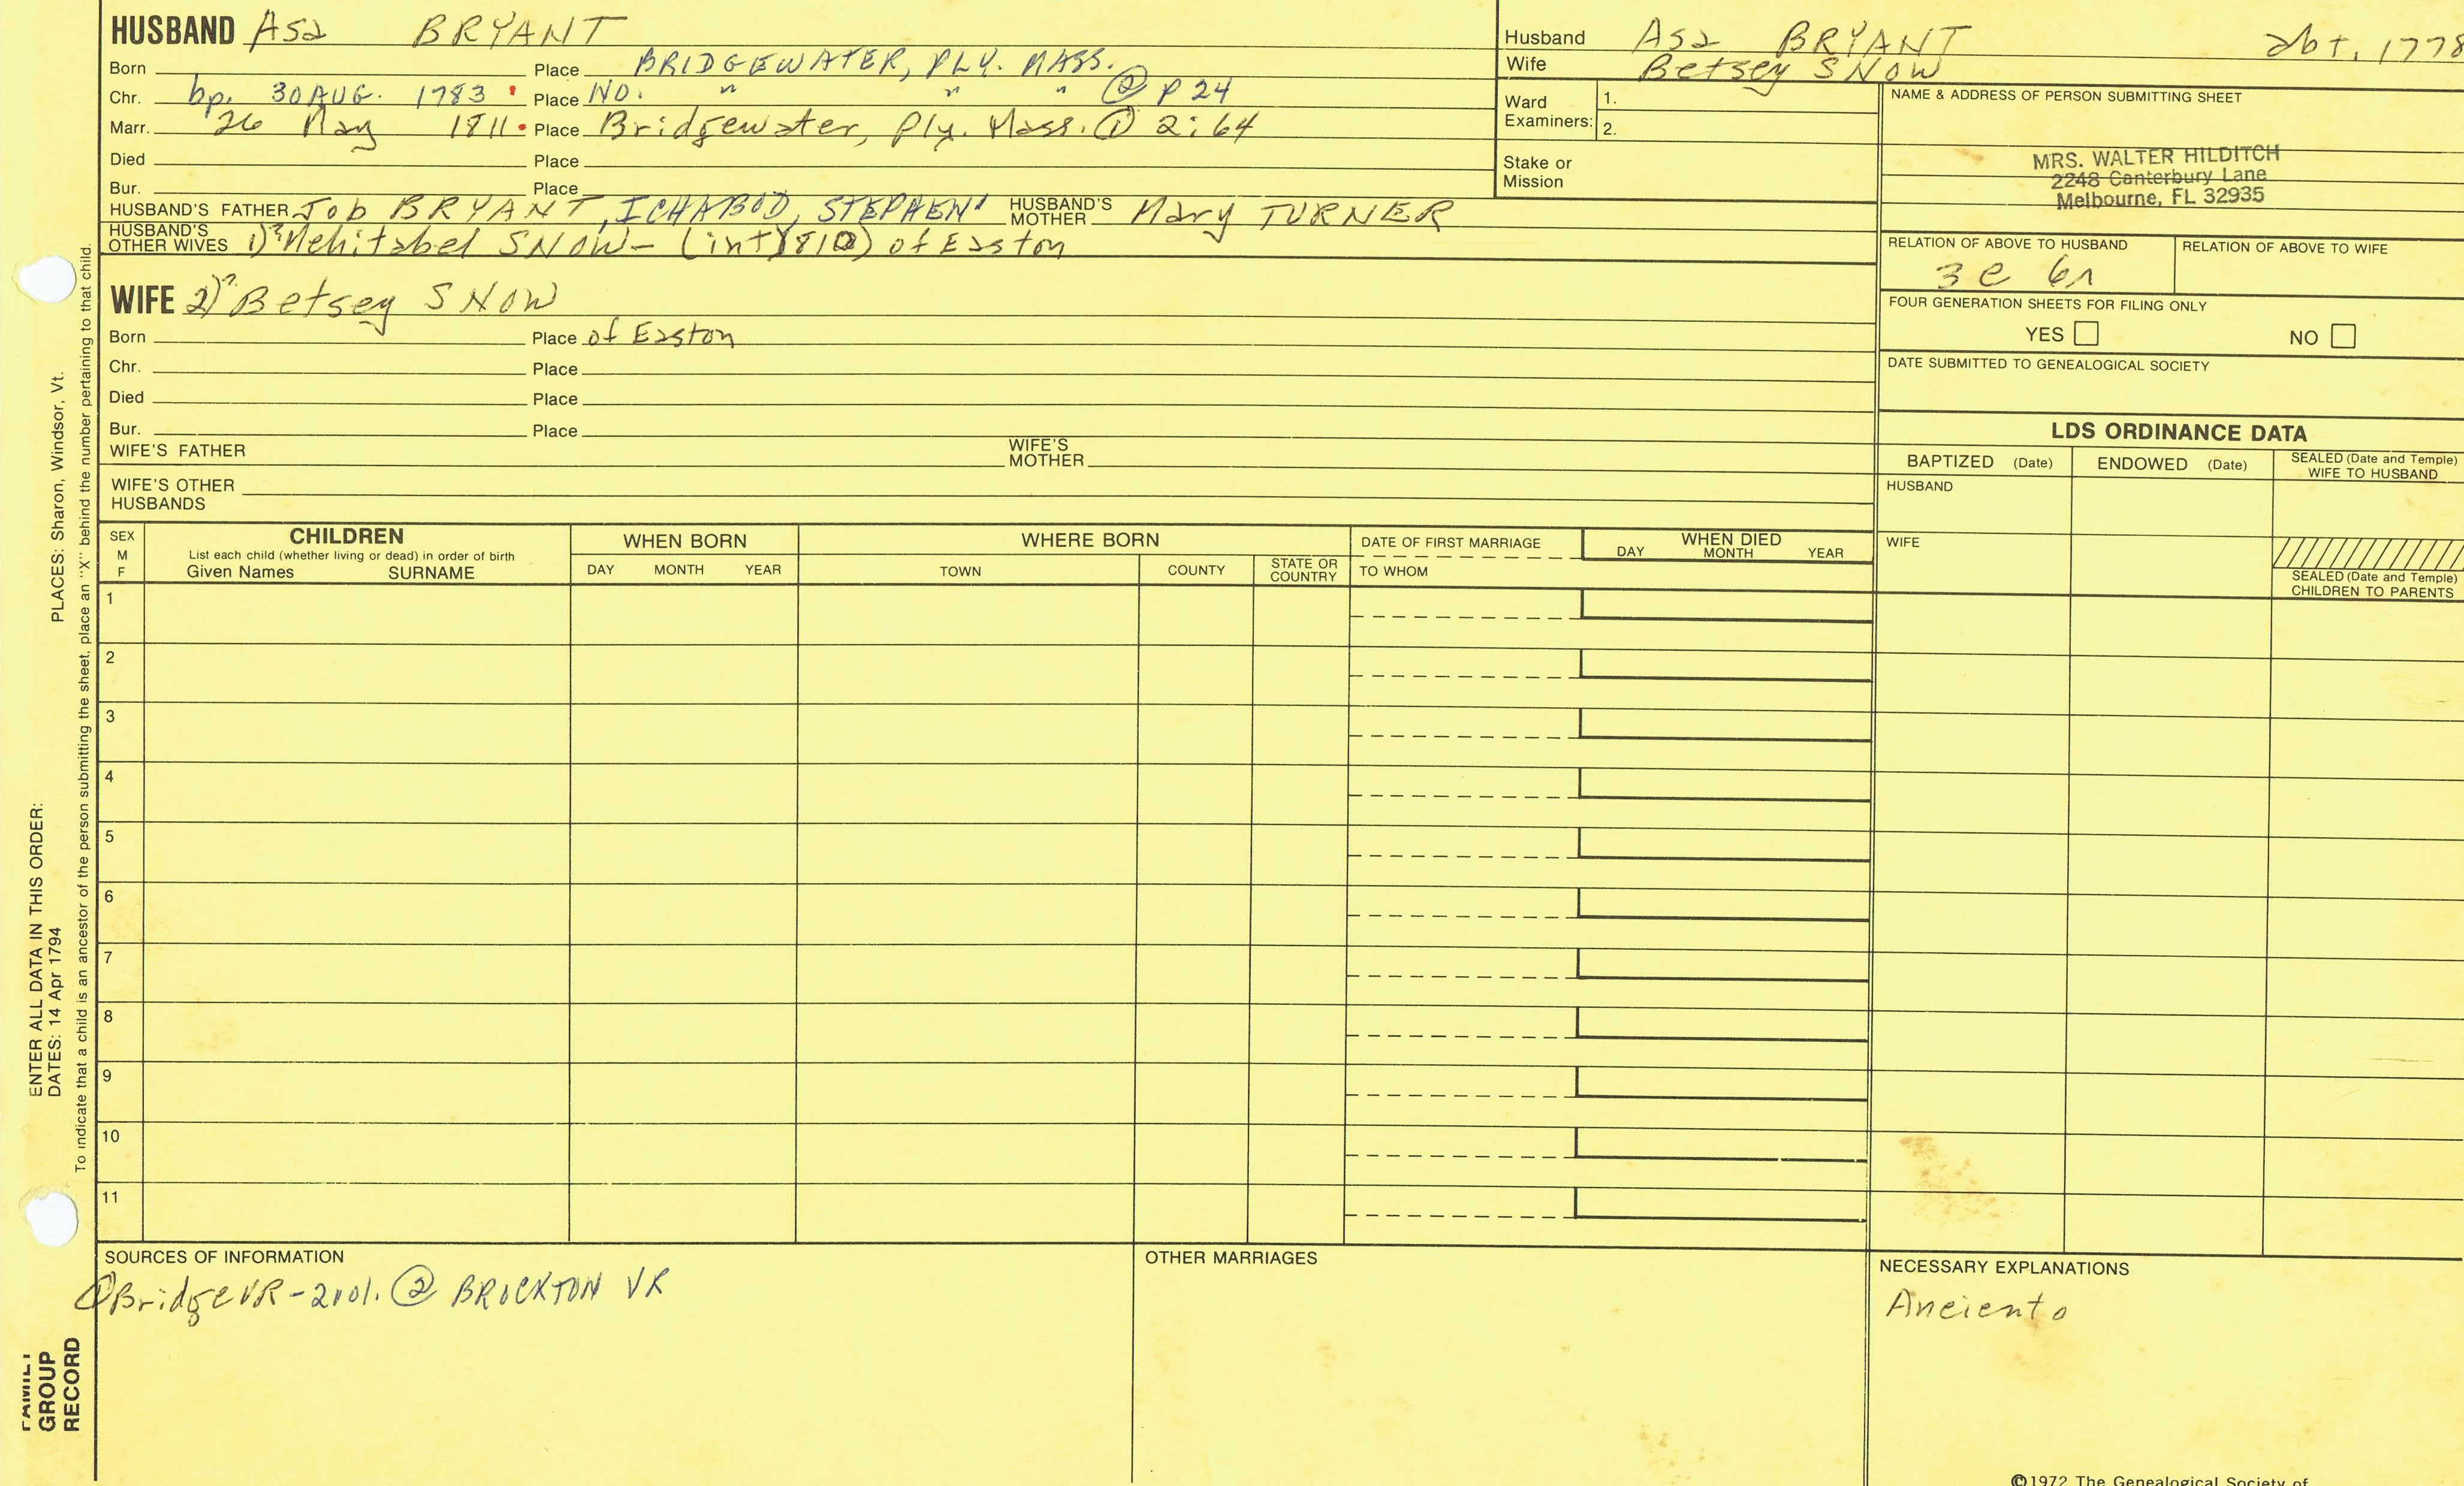 HUSBAND Asa BRYANT
Born Place BRIDGEWATER, PLY. MASS.
Chr. bp. 30 AUG. 1783 Place NO. " " " ② P 24
Marr. 26 May 1811 Place Bridgewater, Ply. Mass. ① 2:64
Died Place
Bur. Place
HUSBAND'S FATHER Job BRYANT, ICHABOD, STEPHEN' HUSBAND'S MOTHER Mary TURNER
HUSBAND'S OTHER WIVES 1)? Mehitabel SNOW - (int 1810) of Easton
WIFE 2)? Betsey SNOW
Born Place of Easton
Chr. Place
Died Place
Bur. Place
WIFE'S FATHER WIFE'S MOTHER
WIFE'S OTHER HUSBANDS
Husband Asa BRYANT abt. 1778
Wife Betsey SNOW
Ward Examiners: 1.
2.
Stake or Mission
NAME & ADDRESS OF PERSON SUBMITTING SHEET
MRS. WALTER HILDITCH
2248 Canterbury Lane
Melbourne, FL 32935
RELATION OF ABOVE TO HUSBAND RELATION OF ABOVE TO WIFE
3 c 6r
FOUR GENERATION SHEETS FOR FILING ONLY
YES NO
DATE SUBMITTED TO GENEALOGICAL SOCIETY
LDS ORDINANCE DATA
BAPTIZED (Date) ENDOWED (Date) SEALED (Date and Temple) WIFE TO HUSBAND
HUSBAND
WIFE
SEALED (Date and Temple) CHILDREN TO PARENTS
SEX M F
CHILDREN
List each child (whether living or dead) in order of birth
Given Names SURNAME
WHEN BORN
DAY MONTH YEAR
WHERE BORN
TOWN COUNTY STATE OR COUNTRY
DATE OF FIRST MARRIAGE
TO WHOM
WHEN DIED
DAY MONTH YEAR
1
2
3
4
5
6
7
8
9
10
11
SOURCES OF INFORMATION
① Bridge VR - 2vol. ② BROCKTON VR
OTHER MARRIAGES
NECESSARY EXPLANATIONS
©1972 The Genealogical Society of
PLACES: Sharon, Windsor, Vt.
To indicate that a child is an ancestor of the person submitting the sheet, place an "X" behind the number pertaining to that child.
ENTER ALL DATA IN THIS ORDER:
DATES: 14 Apr 1794
FAMILY
GROUP
RECORD